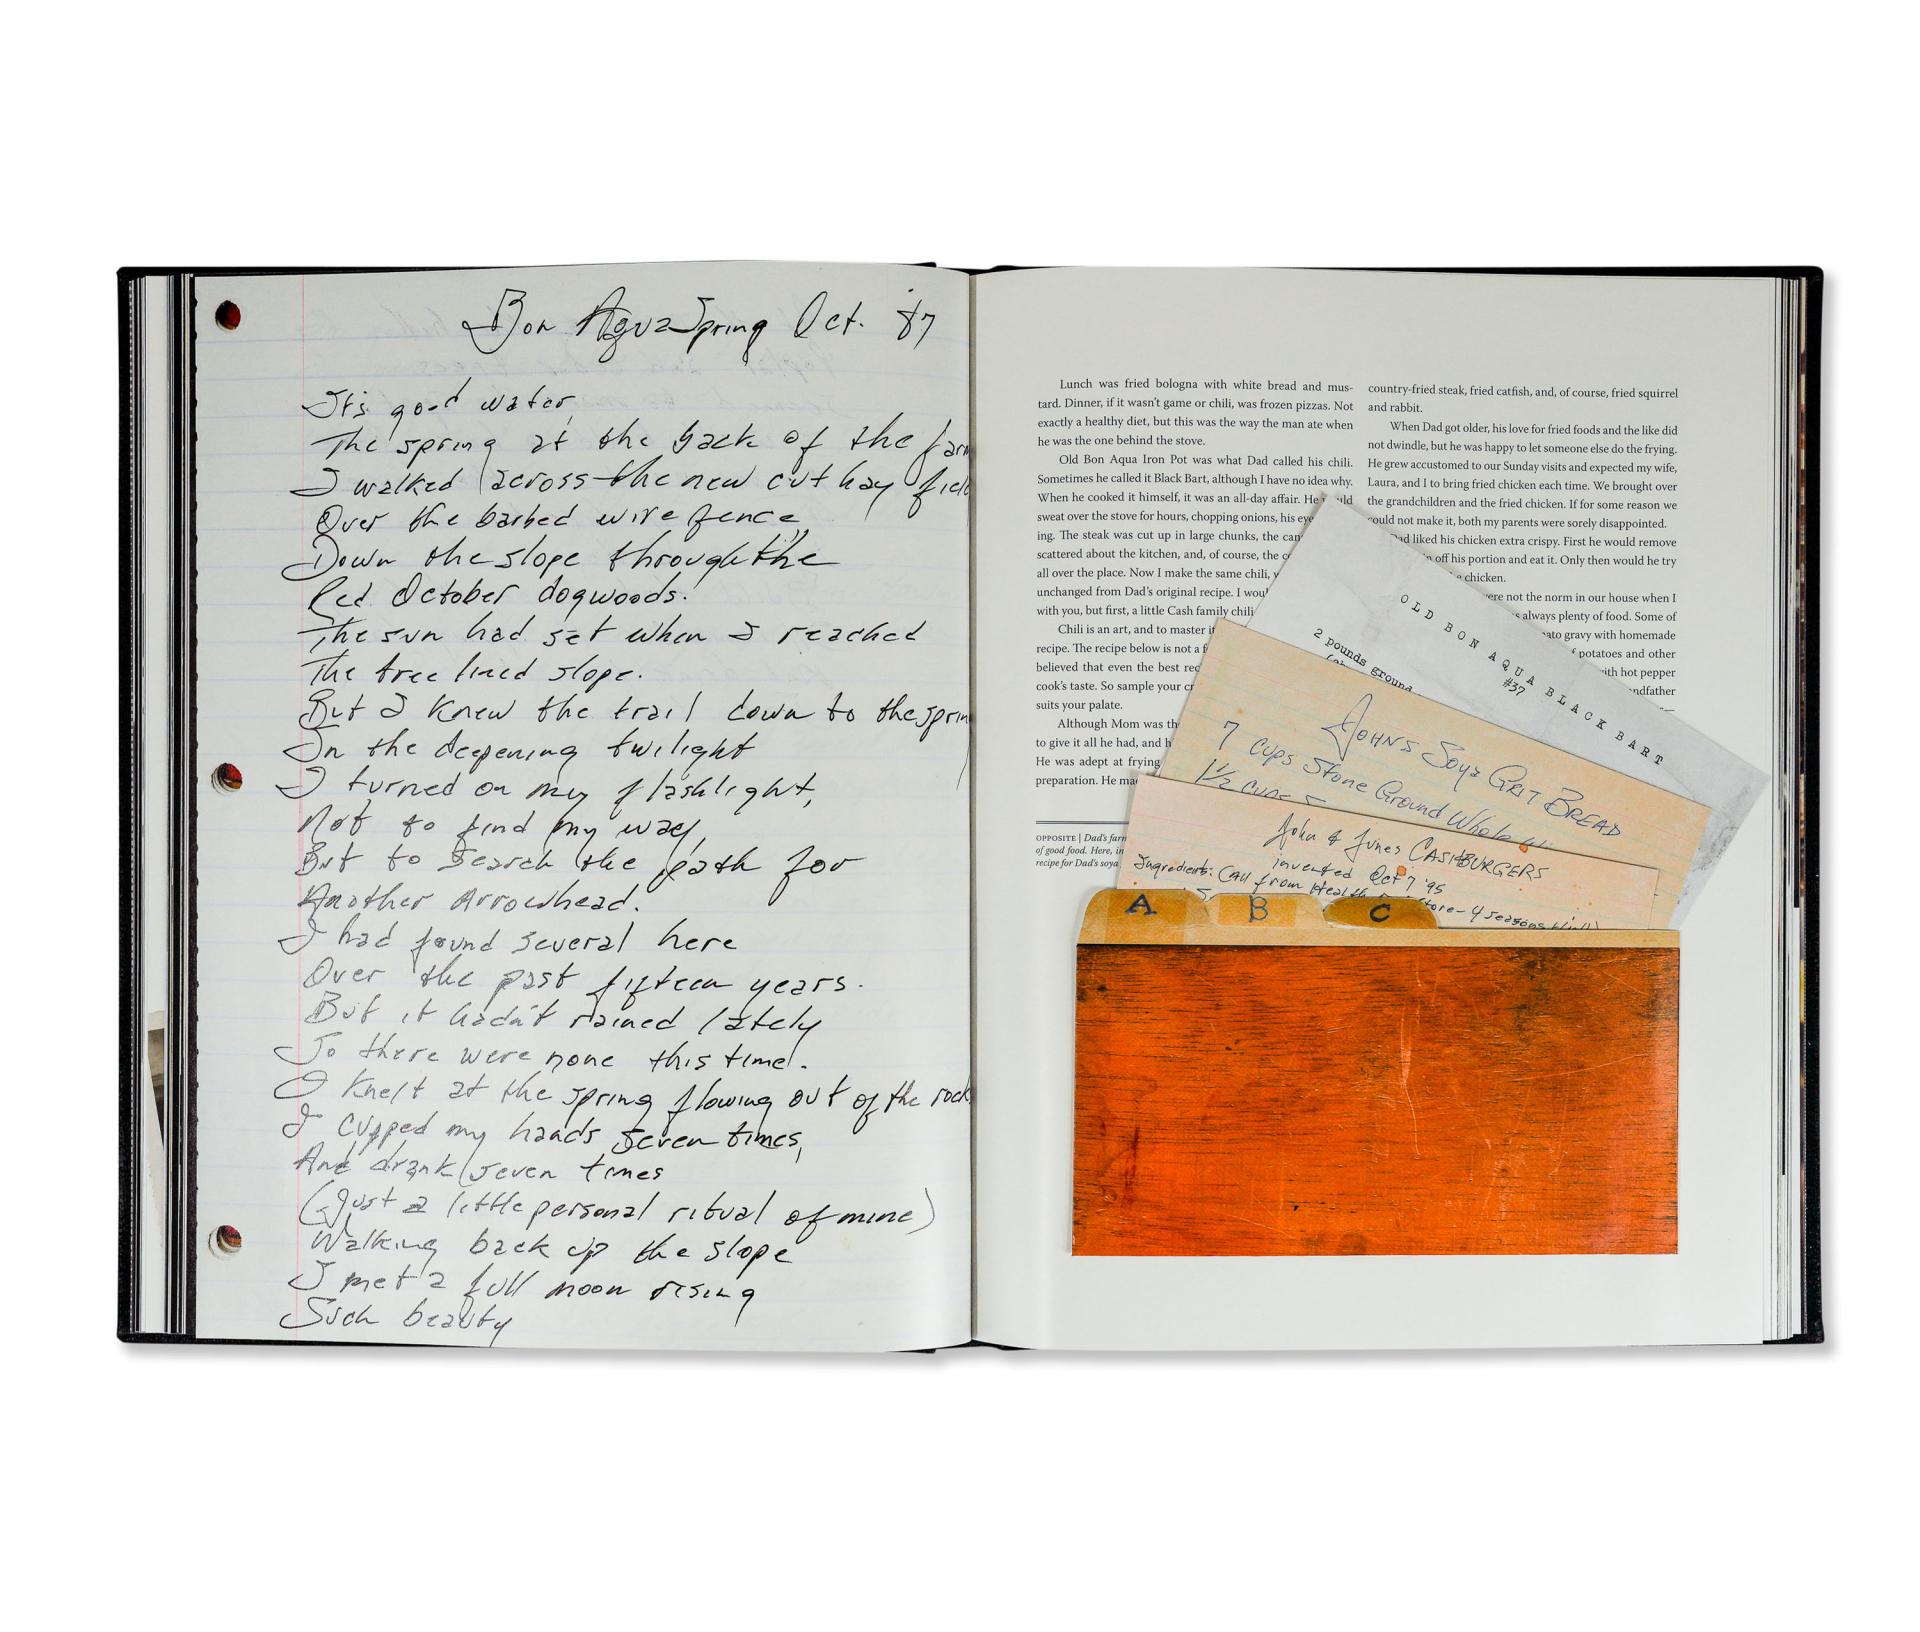 Bon Aqua Spring Oct. '87
It's good water,
The spring at the back of the farm
I walked across the new cut hay field
Over the barbed wire fence,
Down the slope through the
Red October dogwoods.
The sun had set when I reached
The tree lined slope.
But I knew the trail down to the spring
In the deepening twilight
I turned on my flashlight,
Not to find my way,
But to search the path for
Another Arrowhead.
I had found several here
Over the past fifteen years.
But it hadn't rained lately
So there were none this time.
I knelt at the spring flowing out of the rock
I cupped my hands seven times,
And drank seven times
(Just a little personal ritual of mine)
Walking back up the slope
I met a full moon rising
Such beauty
Lunch was fried bologna with white bread and mus-
tard. Dinner, if it wasn't game or chili, was frozen pizzas. Not
exactly a healthy diet, but this was the way the man ate when
he was the one behind the stove.
Old Bon Aqua Iron Pot was what Dad called his chili.
Sometimes he called it Black Bart, although I have no idea why.
When he cooked it himself, it was an all-day affair. He would
sweat over the stove for hours, chopping onions, his eye
ing. The steak was cut up in large chunks, the can
scattered about the kitchen, and, of course, the c
all over the place. Now I make the same chili,
unchanged from Dad's original recipe. I woul
with you, but first, a little Cash family chili
Chili is an art, and to master it
recipe. The recipe below is not a f
believed that even the best rec
cook's taste. So sample your cr
suits your palate.
Although Mom was th
to give it all he had, and h
He was adept at frying
preparation. He ma
OPPOSITE | Dad's farm
of good food. Here, in
recipe for Dad's soya
country-fried steak, fried catfish, and, of course, fried squirrel
and rabbit.
When Dad got older, his love for fried foods and the like did
not dwindle, but he was happy to let someone else do the frying.
He grew accustomed to our Sunday visits and expected my wife,
Laura, and I to bring fried chicken each time. We brought over
the grandchildren and the fried chicken. If for some reason we
could not make it, both my parents were sorely disappointed.
ad liked his chicken extra crispy. First he would remove
n off his portion and eat it. Only then would he try
e chicken.
were not the norm in our house when I
s always plenty of food. Some of
ato gravy with homemade
f potatoes and other
with hot pepper
ndfather
OLD BON AQUA BLACK BART
#37
2 pounds ground
JOHNS Soya GRIT BREAD
7 cups Stone Ground Whole
1 1/2 cups
John & Junes CASHBURGERS
invented Oct 7 '95
Ingredients: (All from Health Food Store - 4 Seasons
A B C